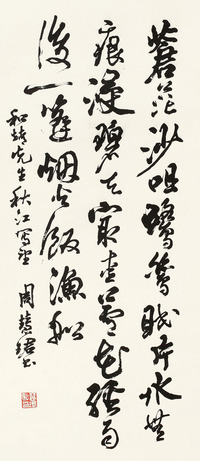 蒼茫沙咀鷺鷥眠片水無
痕浸碧天最愛蘆花經雨
後一篷烟火飯漁船
和靖先生秋江寫望 周慧珺書